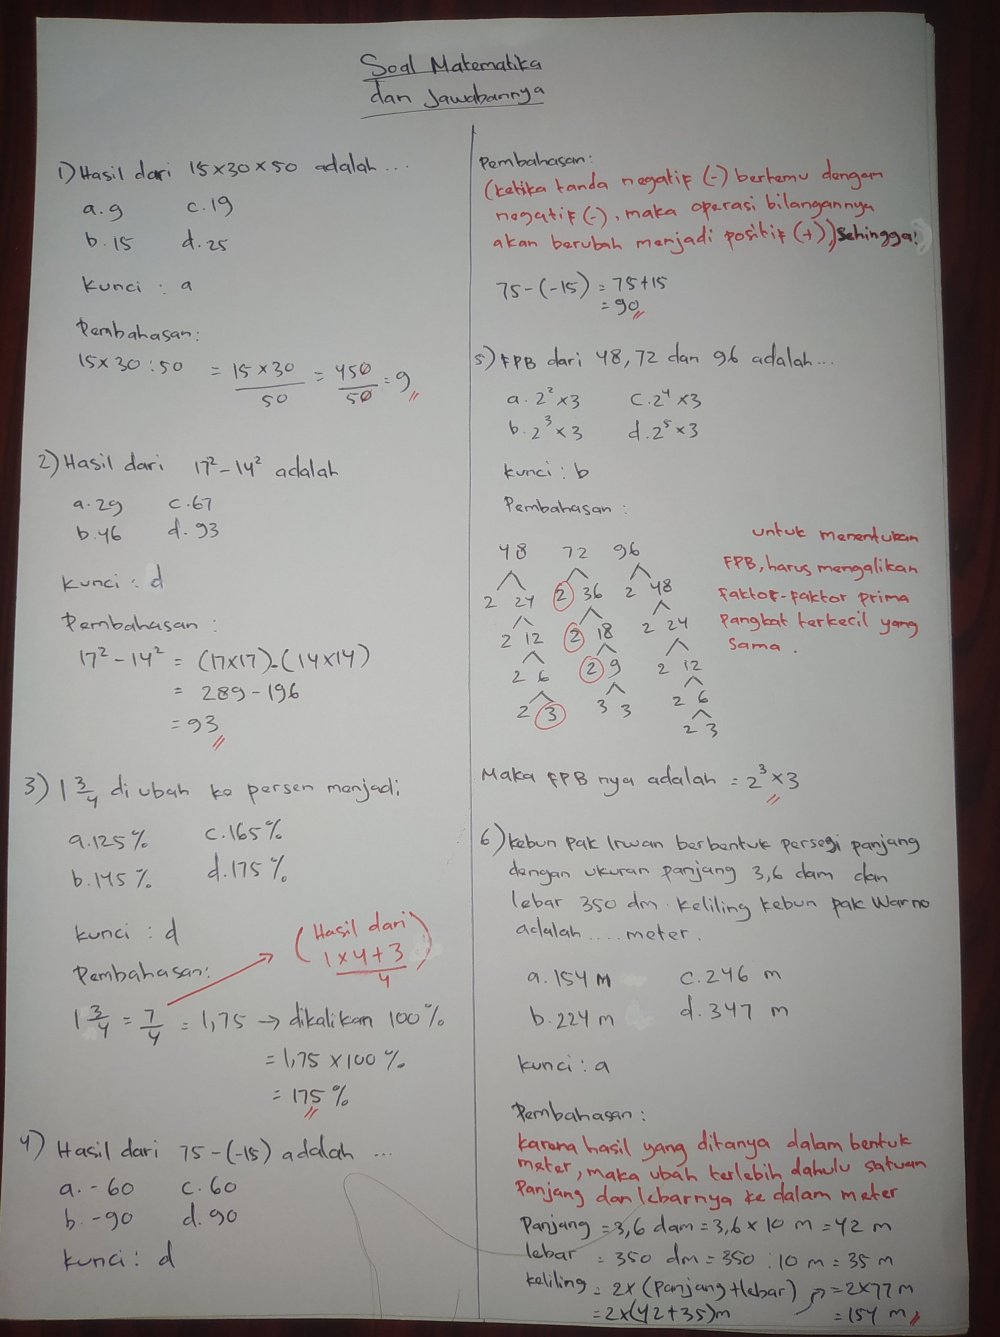 Soal Matematika
dan Jawabannya
1) Hasil dari 15×30×50 adalah ...
a. 9 c. 19
b. 15 d. 25
Kunci : a
Pembahasan:
15×30:50 = 15×30/50 = 450/50 = 9
2) Hasil dari 17² – 14² adalah
a. 29 c. 67
b. 46 d. 93
Kunci : d
Pembahasan :
17² – 14² = (17×17)-(14×14)
= 289 – 196
= 93
3) 1 3/4 di ubah ke persen menjadi;
a. 125% c. 165%
b. 145% d. 175%
Kunci : d
(Hasil dari
1×4+3/4)
Pembahasan:
1 3/4 = 7/4 = 1,75 → dikalikan 100%
= 1,75 × 100%
= 175%
4) Hasil dari 75-(-15) adalah ...
a. - 60 c. 60
b. -90 d. 90
Kunci : d
Pembahasan:
(ketika tanda negatif (-) bertemu dengan
negatif (-), maka operasi bilangannya
akan berubah menjadi positif (+)), Sehingga:
75-(-15) = 75+15
= 90
5) FPB dari 48, 72 dan 96 adalah ...
a. 2² × 3 c. 2⁴ × 3
b. 2³ × 3 d. 2⁵ × 3
Kunci : b
Pembahasan :
48 72 96
2 24 2 36 2 48
2 12 2 18 2 24
2 6 2 9 2 12
2 3 3 3 2 6
2 3
untuk menentukan
FPB, harus mengalikan
faktor-faktor prima
pangkat terkecil yang
sama.
Maka FPB nya adalah = 2³ × 3
6) Kebun Pak Irwan berbentuk persegi panjang
dengan ukuran panjang 3,6 dam dan
lebar 350 dm. Keliling kebun pak Warno
adalah .... meter.
a. 154 m c. 246 m
b. 224 m d. 347 m
Kunci : a
Pembahasan :
Karena hasil yang ditanya dalam bentuk
meter, maka ubah terlebih dahulu satuan
Panjang dan lebarnya ke dalam meter
Panjang = 3,6 dam = 3,6 × 10 m = 42 m
lebar = 350 dm = 350 : 10 m = 35 m
keliling = 2×(Panjang+lebar)
= 2×(42+35)m
= 2×77 m
= 154 m